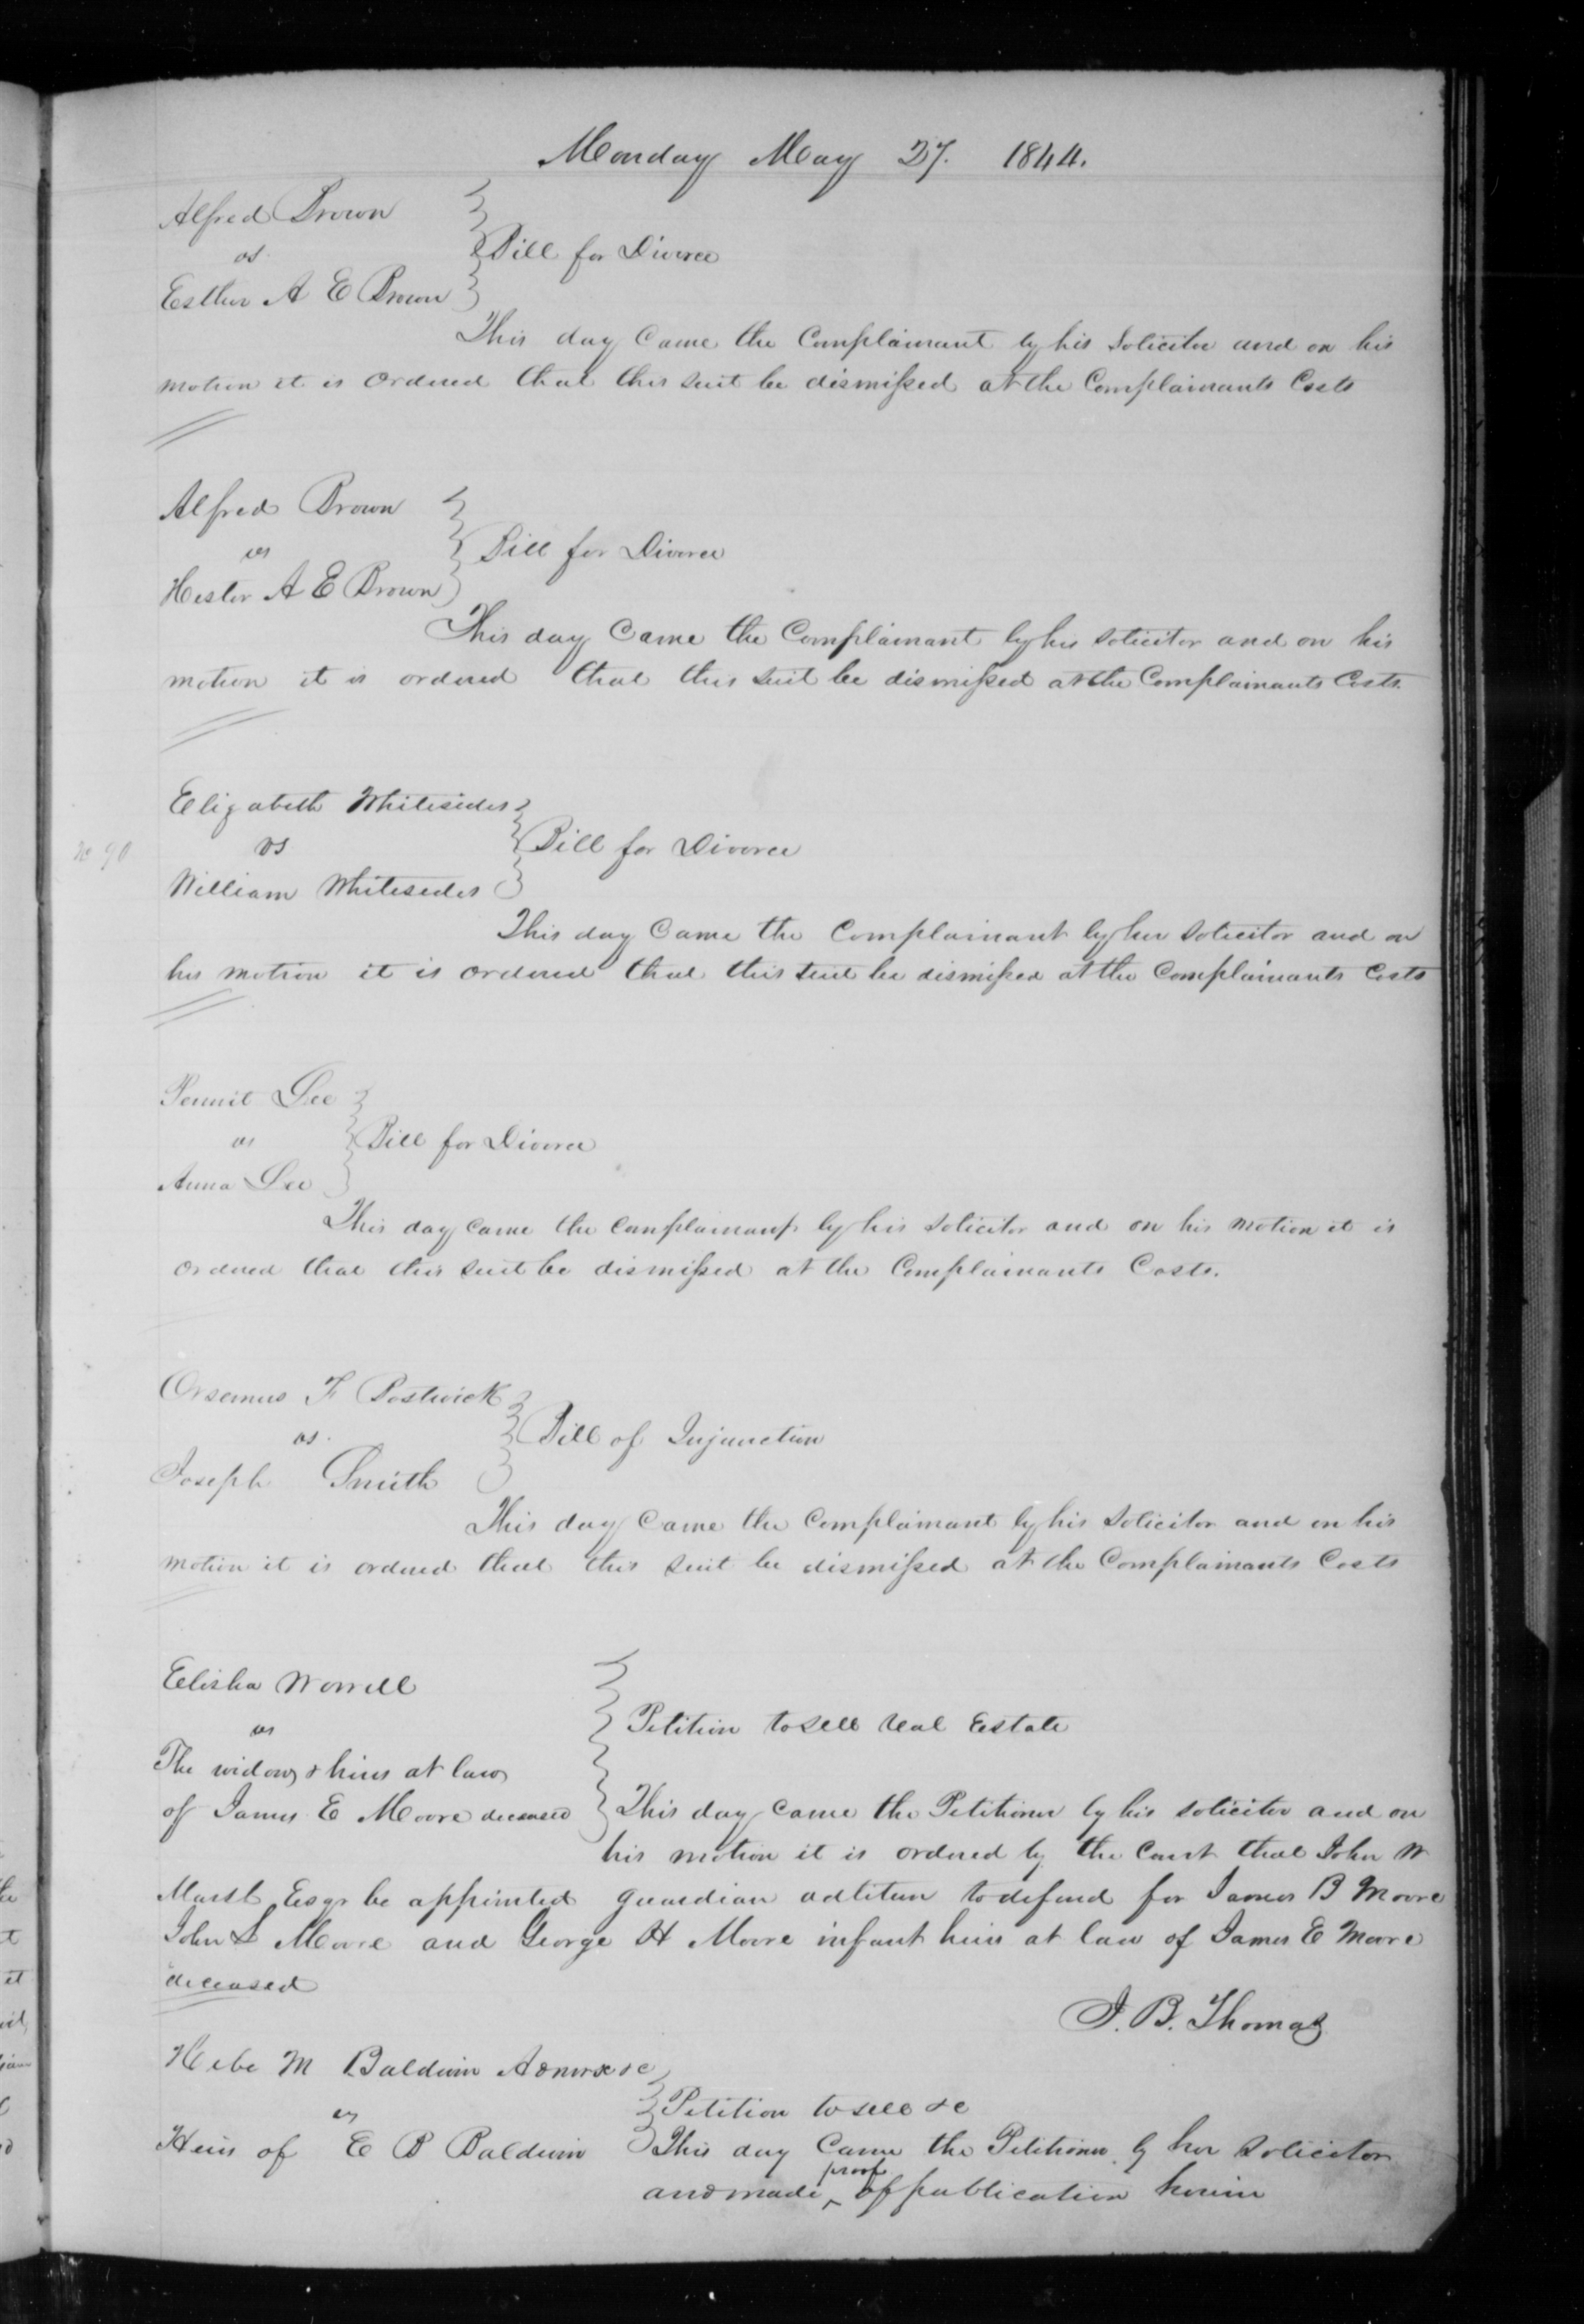 Monday May 27. 1844.
Alfred Brown
vs.
Bill for Divorce
Esther A E Brown
This day Came the Complainant by his Solicitor and on his
motion it is Ordered that this suit be dismissed at the Complainants Costs
Alfred Brown
vs
Bill for Divorce
Hester A E Brown
This day Came the Complainant by his Solicitor and on his
motion it is ordered that this suit be dismissed at the Complainants Costs.
Elizabeth Whitesides
No 90
vs
Bill for Divorce
William Whitesides
This day Came the Complainant by her Solicitor and on
his motion it is ordered that this suit be dismissed at the Complainants Costs
Lee
vs
Bill for Divorce
Anna Lee
This day came the Complainant by his Solicitor and on his motion it is
ordered that this suit be dismissed at the Complainants Costs.
Orsemus F Bostwick
vs.
Bill of Injunction
Joseph Smith
This day Came the Complainant by his Solicitor and on his
motion it is ordered that this suit be dismissed at the Complainants Costs
Elisha Worrell
vs
Petition to sell real Eestate
The widow & heirs at law
of James E Moore deceased
This day came the Petitioner by his solicitor and on
his motion it is ordered by the Court that John W
Esqr be appointed guardian adlitum to defend for James B Moore
John L Moore and George H Moore infant heirs at law of James E Moore
deceased
J. B. Thomas
Hebe M Baldwin Admrx &c
vs
Petition to sell &c
Heirs of E B Baldwin
This day Came the Petitioner by her Solicitor
and made proof of publication herein